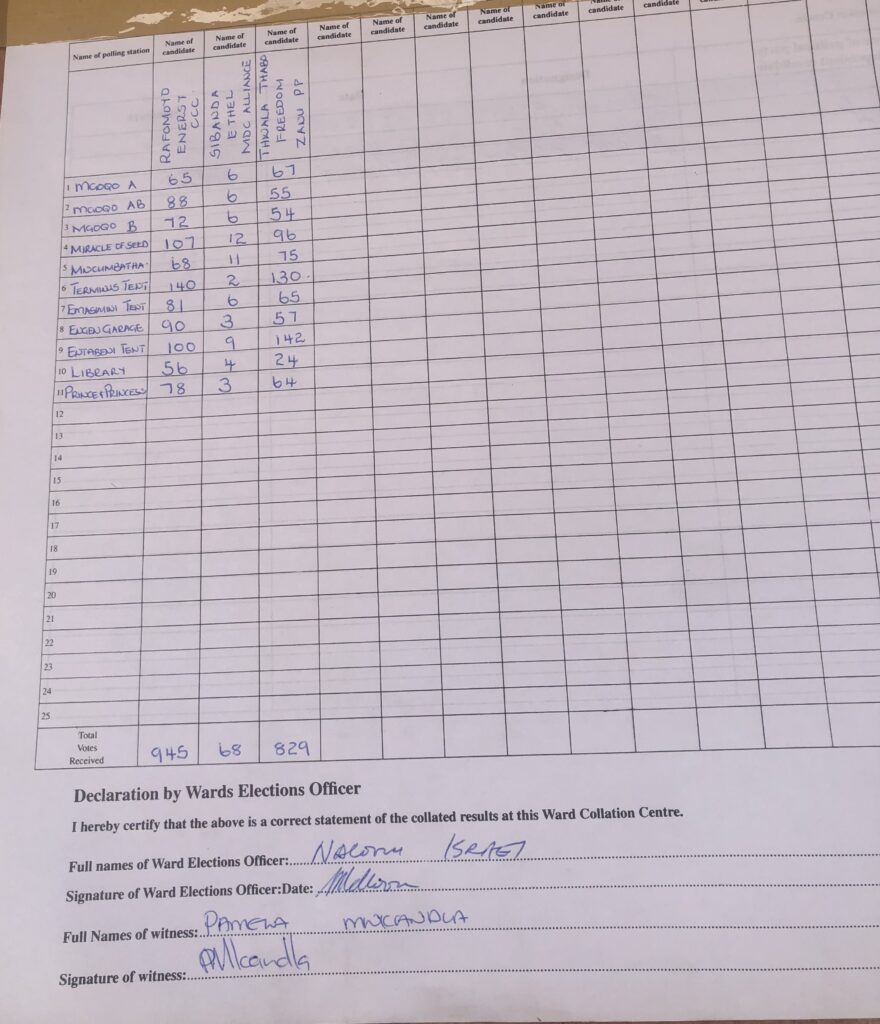 Name of polling station Name of candidate Name of candidate Name of candidate Name of candidate Name of candidate Name of candidate Name of candidate Name of candidate Name of candidate candidate
RAFOMOYO ENERST CCC
SIBANDA ETHEL MDC ALLIANCE
THWALA THABO FREEDOM ZANU PP
1 MGOQO A 65 6 67
2 MGOQO AB 88 6 55
3 MGOQO B 72 6 54
4 MIRACLE OF SEED 107 12 96
5 MNCUMBATHA 68 11 75
6 TERMINUS TENT 140 2 130
7 EMASIMINI TENT 81 6 65
8 ENGEN GARAGE 90 3 57
9 ENTABENI TENT 100 9 142
10 LIBRARY 56 4 24
11 PRINCE & PRINCESS 78 3 64
12
13
14
15
16
17
18
19
20
21
22
23
24
25
Total Votes Received 945 68 829
Declaration by Wards Elections Officer
I hereby certify that the above is a correct statement of the collated results at this Ward Collation Centre.
Full names of Ward Elections Officer:
Signature of Ward Elections Officer:Date:
Full Names of witness: PAMELA MNCANDLA
Signature of witness: